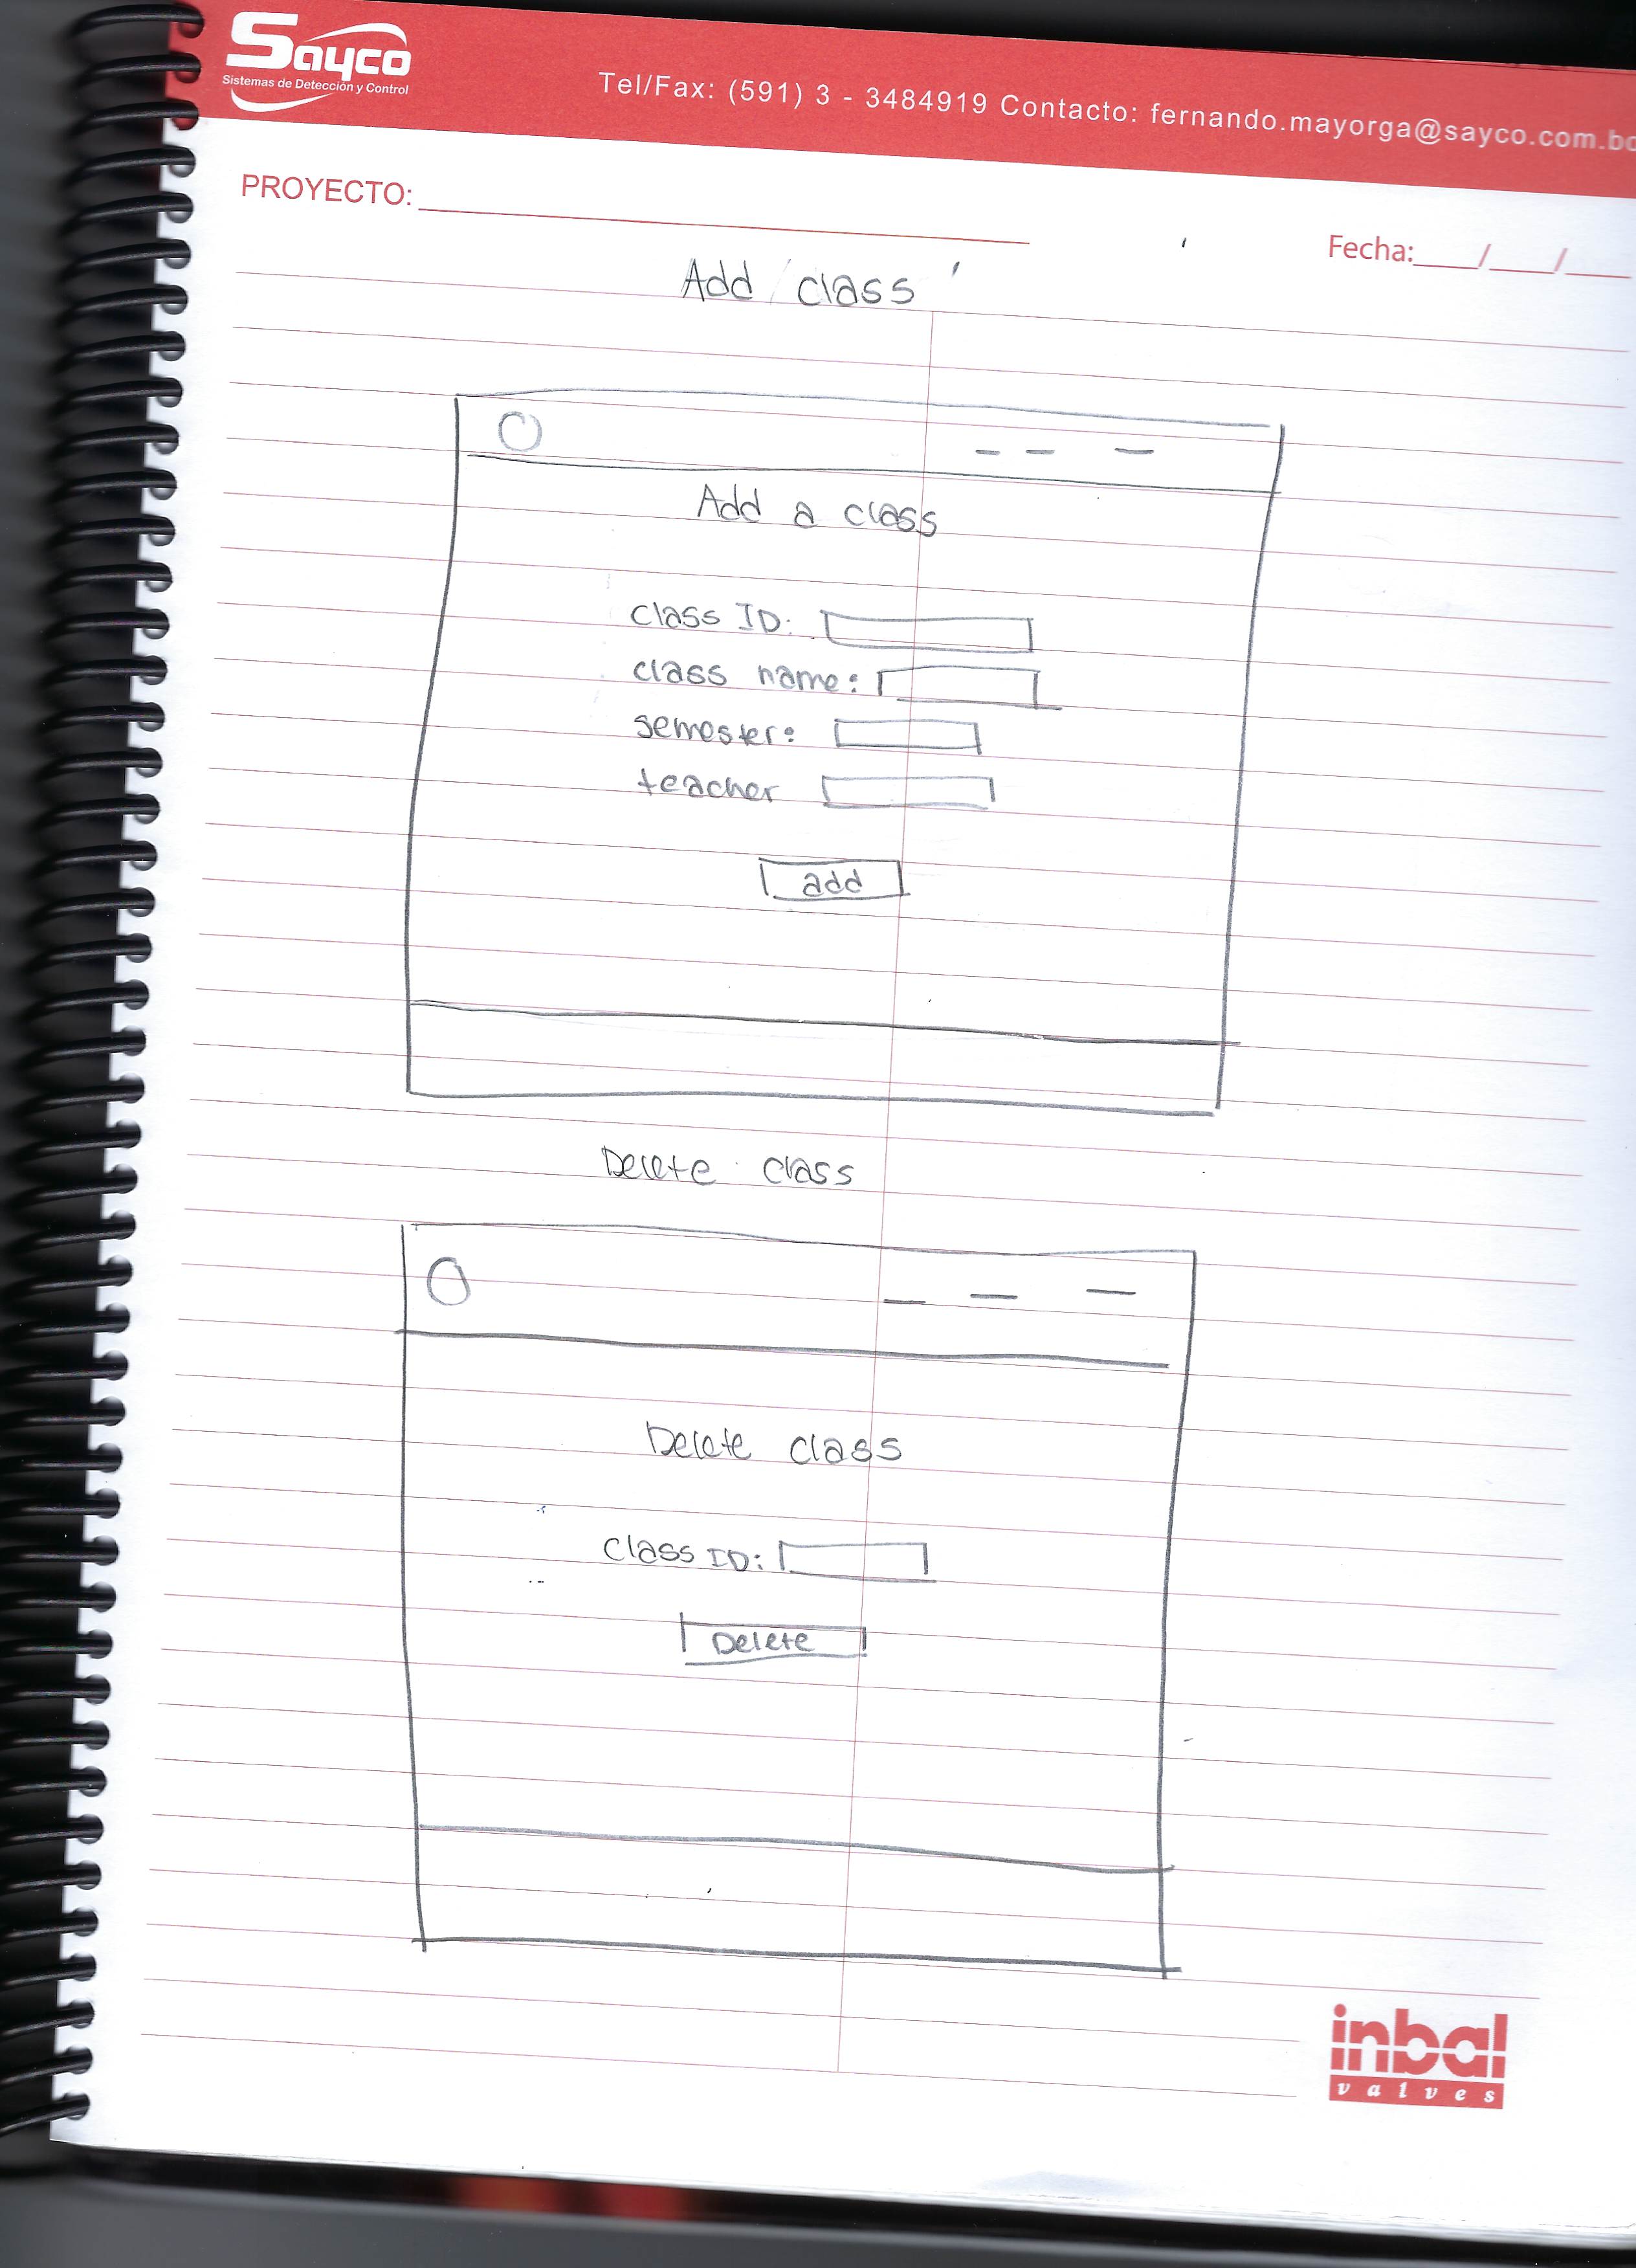 Sayco
Sistemas de Detección y Control
Tel/Fax: (591) 3 - 3484919 Contacto: fernando.mayorga@sayco.com.bo
PROYECTO:
Fecha:___/___/___
Add class
Add a class
class ID:
class name:
semester:
teacher
add
Delete class
Delete class
class ID:
Delete
inbal
valves